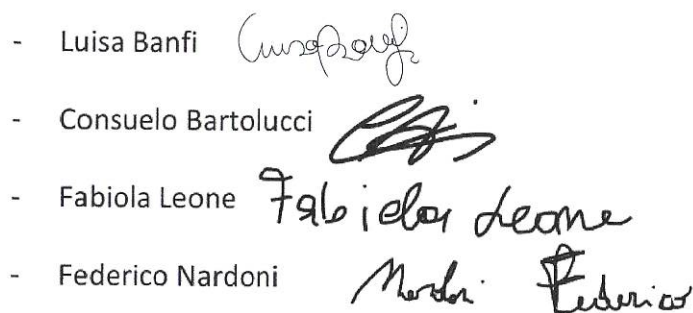 - Luisa Banfi Luisa Banfi
- Consuelo Bartolucci
- Fabiola Leone Fabiola Leone
- Federico Nardoni Nardoni Federico